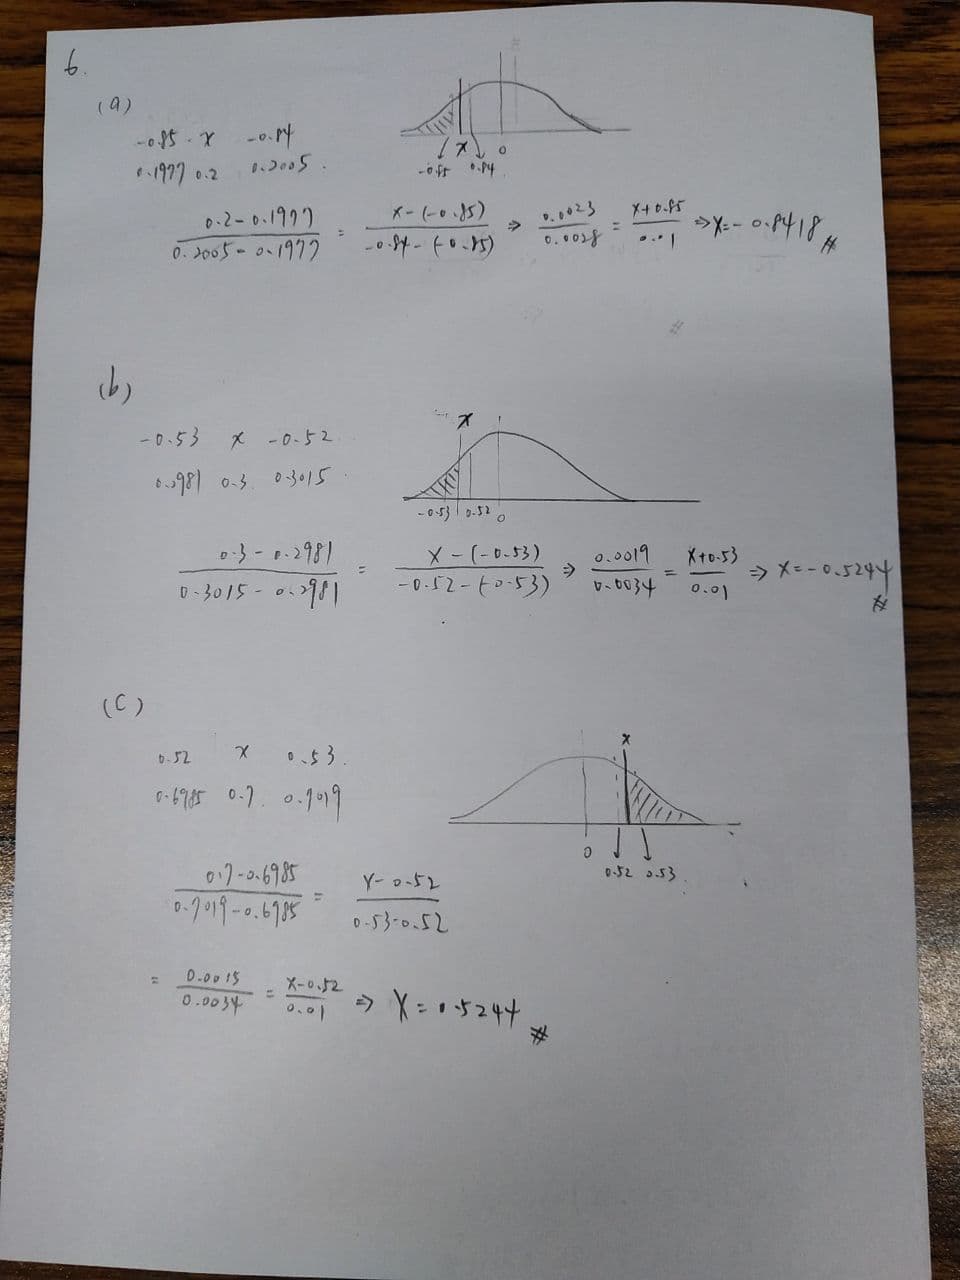 6.
(a)
-0.85 x -0.84
0.1977 0.2 0.2005
x 0
-0.85 0.84
(0.2-0.1977)/(0.2005-0.1977) = (x-(-0.85))/(-0.84-(-0.85)) ⇒ 0.0023/0.0028 = (x+0.85)/0.01 ⇒ x=-0.8418 #
(b)
x
-0.53 x -0.52
0.2981 0.3 0.3015
-0.53 0.52 0
(0.3-0.2981)/(0.3015-0.2981) = (x-(-0.53))/(-0.52-(-0.53)) ⇒ 0.0019/0.0034 = (x+0.53)/0.01 ⇒ x=-0.5244 #
(c)
x
0.52 x 0.53
0.6985 0.7 0.7019
0 0.52 0.53
(0.7-0.6985)/(0.7019-0.6985) = (x-0.52)/(0.53-0.52)
= 0.0015/0.0034 = (x-0.52)/0.01 ⇒ x=0.5244 #